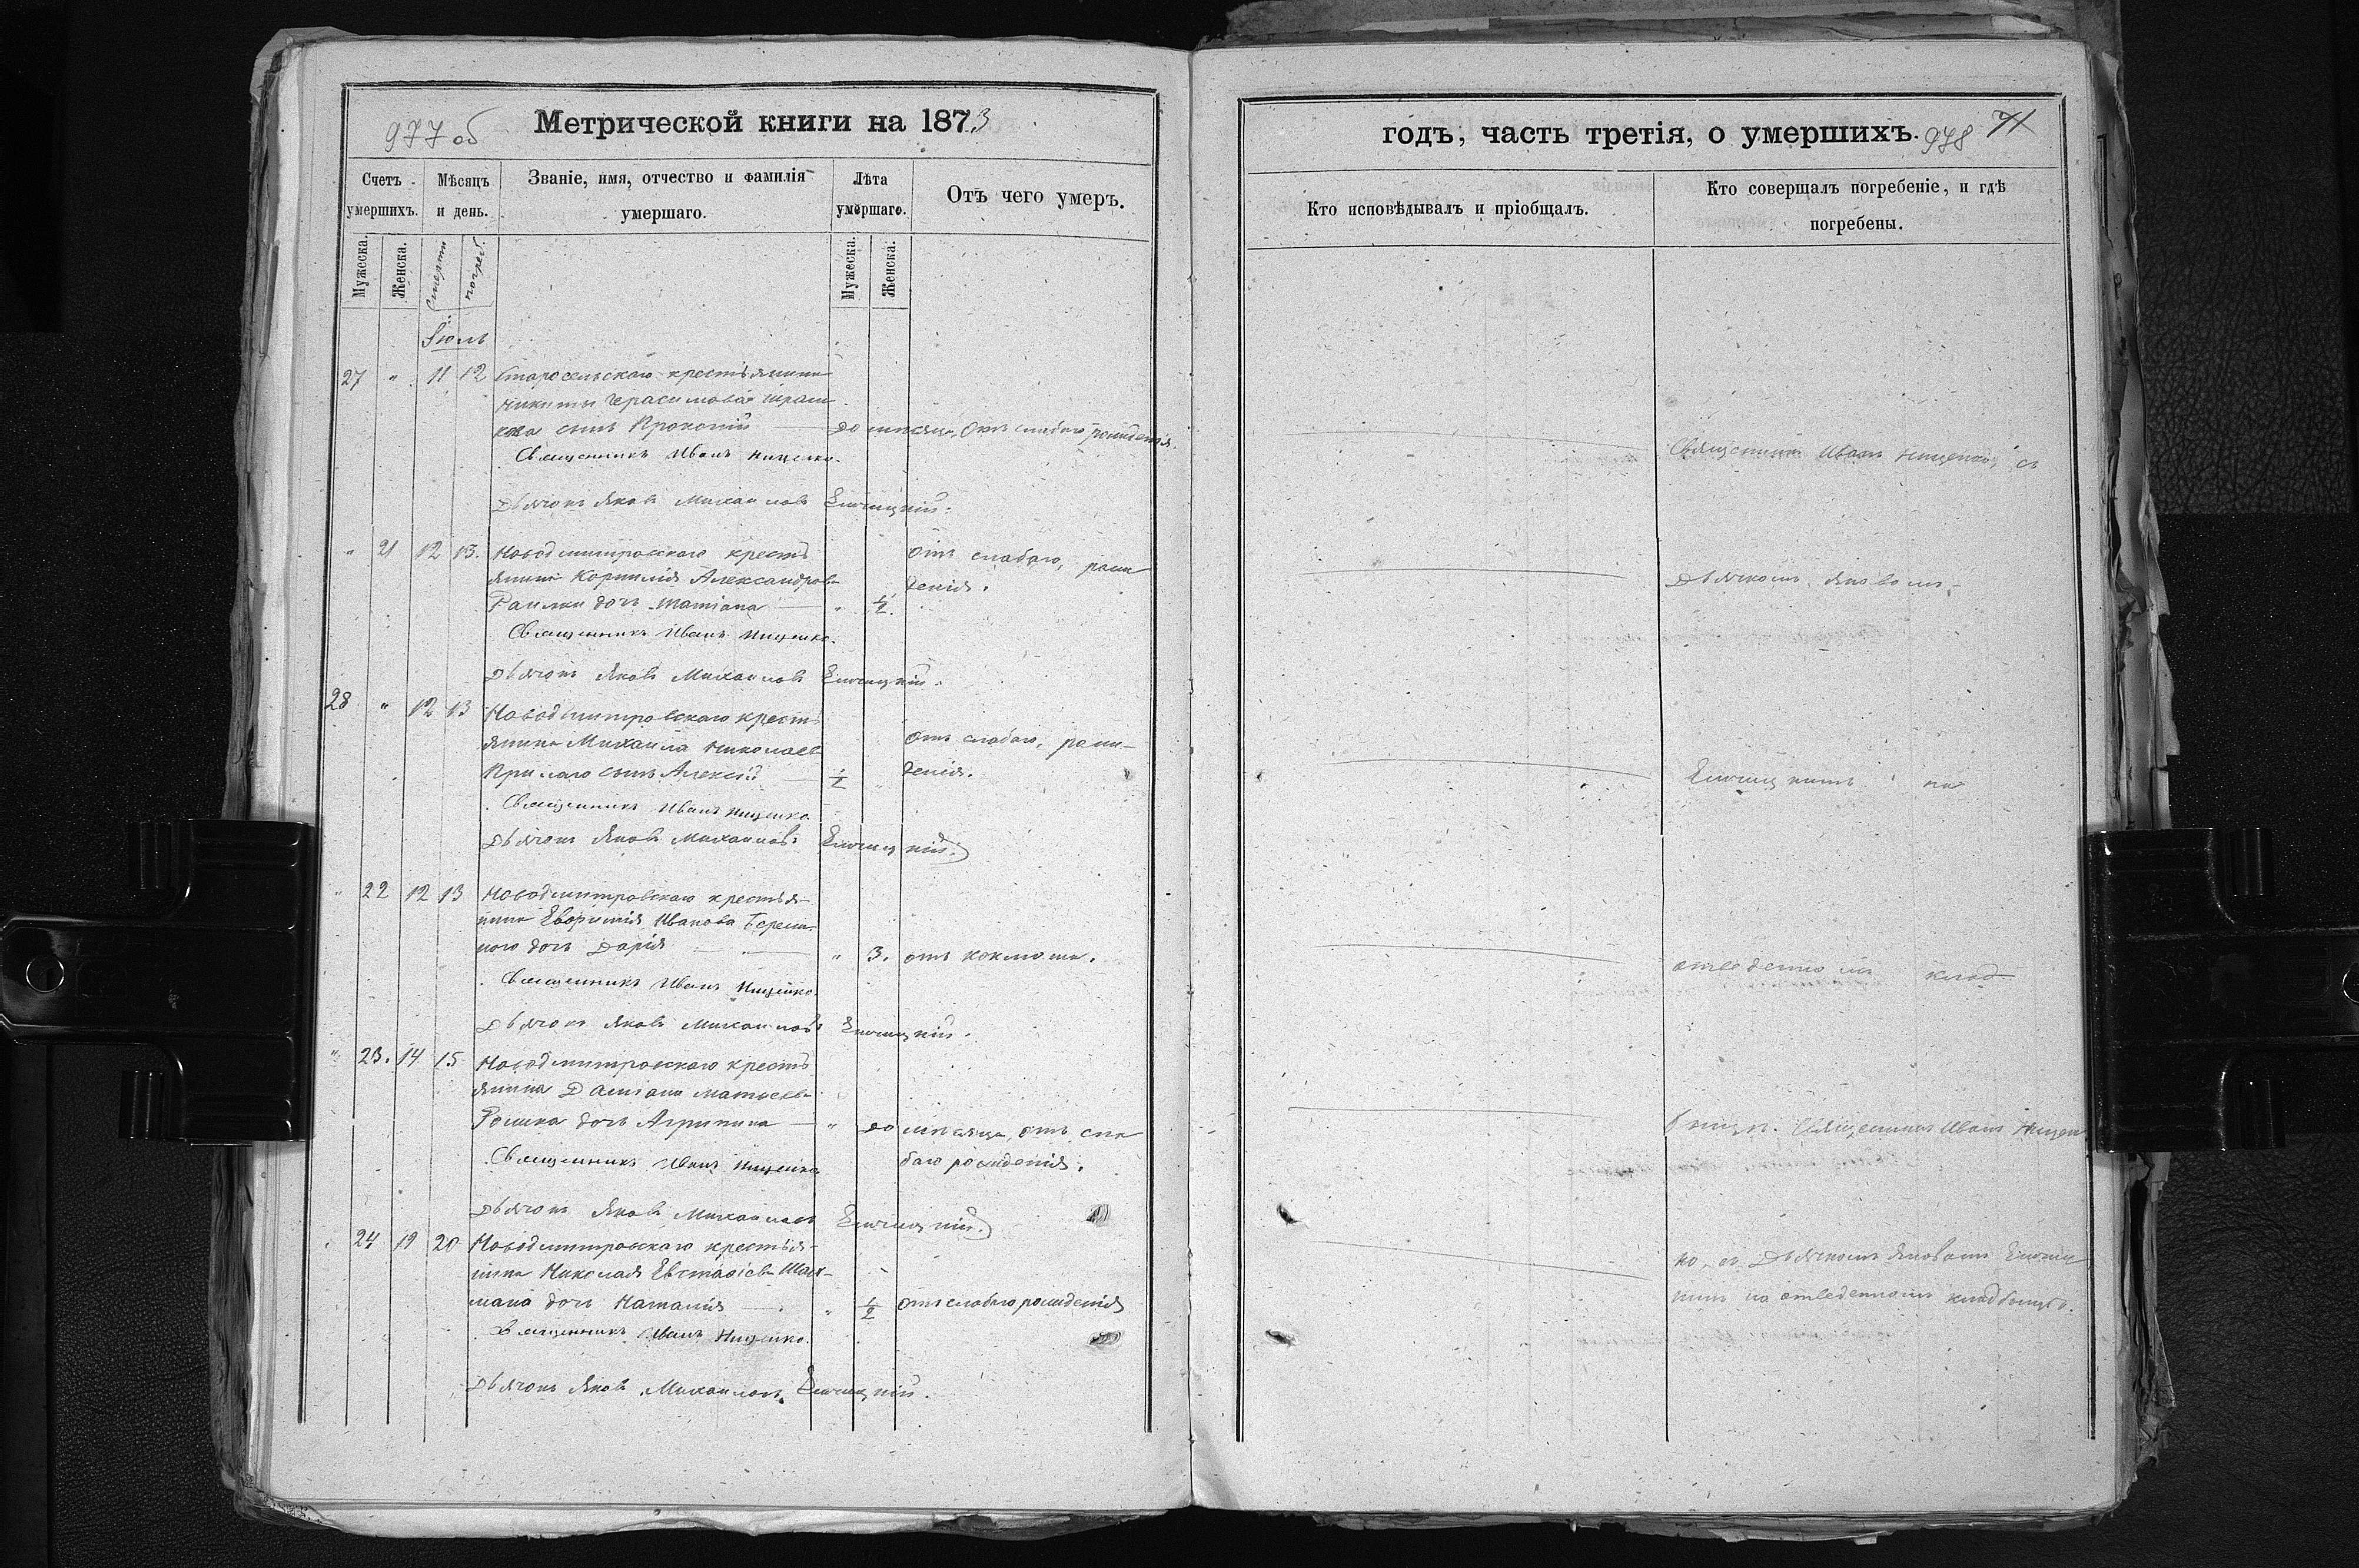 977 об
Метрической книги на 1873
Счетъ умершихъ.
Мѣсяцъ и день.
Званіе, имя, отчество и фамилія умершаго.
Лѣта умершаго.
Отъ чего умеръ.
Мужеска.
Женска.
Смерти
погреб.
Мужеска.
Женска.
Іюль
27 " 11 12 Старосельскаго крестьянина
Никиты Герасимова
сынъ Прокопій — до мѣсяца, Отъ слабаго рожденія.
Священникъ Иванъ Нищенко.
Дьячокъ Яковъ Михаиловъ
" 21 12 13. Новодмитровскаго кресть
янина Корнилія Александрова
дочь Татіана — " 1/2.
отъ слабаго, рож
денія.
Священникъ Иванъ Нищенко.
Дьячокъ Яковъ Михаиловъ
28 " 12 13 Новодмитровскаго кресть
янина Михаила Николаев
сынъ Алексій — 1/2 "
отъ слабаго, рож-
денія.
Священникъ Иванъ Нищенко
Дьячокъ Яковъ Михаиловъ
" 22 12 13 Новодмитровскаго крестья-
нина Евфимія Иванова
дочь Дарія — " 3. отъ коклюша.
Священникъ Иванъ Нищенко.
Дьячокъ Яковъ Михаиловъ
" 23. 14 15 Новодмитровскаго кресть
янина Даміана Матвѣева
дочь Агрипина — " до мѣсяца, отъ сла
баго рожденія.
Священникъ Иванъ Нищенко
Дьячокъ Яковъ Михаиловъ
" 24 19 20 Новодмитровскаго крестья-
нина Николая Евстафіева
дочь Наталія — " 1/2 отъ слабаго рожденія
Священникъ Иванъ Нищенко.
Дьячокъ Яковъ Михаиловъ
годъ, часть третія, о умершихъ.
978 71
Кто исповѣдывалъ и пріобщалъ.
Кто совершалъ погребеніе, и гдѣ погребены.
Священникъ Иванъ Нищенко, съ
Дьячкомъ Яковомъ
на
отведенномъ клад
бищѣ. Священникъ Иванъ Нищен
ко, съ Дьячкомъ Яковомъ
на отведенномъ кладбищѣ.